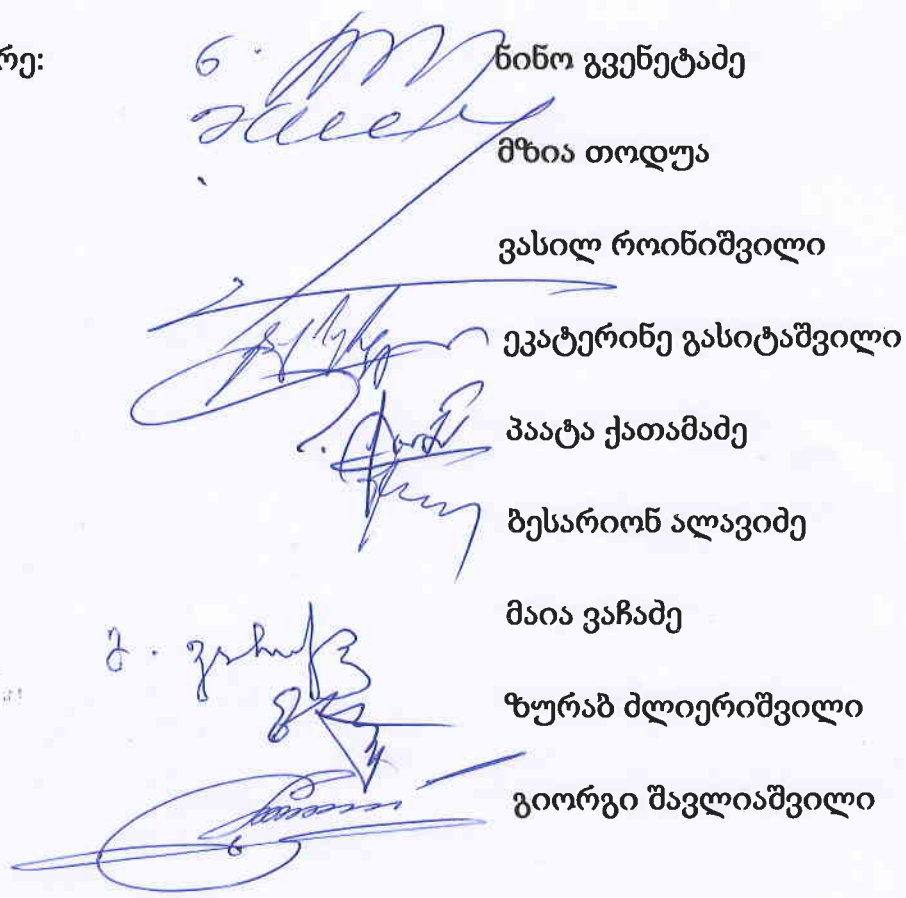 რე: ნინო გვენეტაძე
მზია თოდუა
ვასილ როინიშვილი
ეკატერინე გასიტაშვილი
პაატა ქათამაძე
ბესარიონ ალავიძე
მაია ვაჩაძე
ზურაბ ძლიერიშვილი
გიორგი შავლიაშვილი